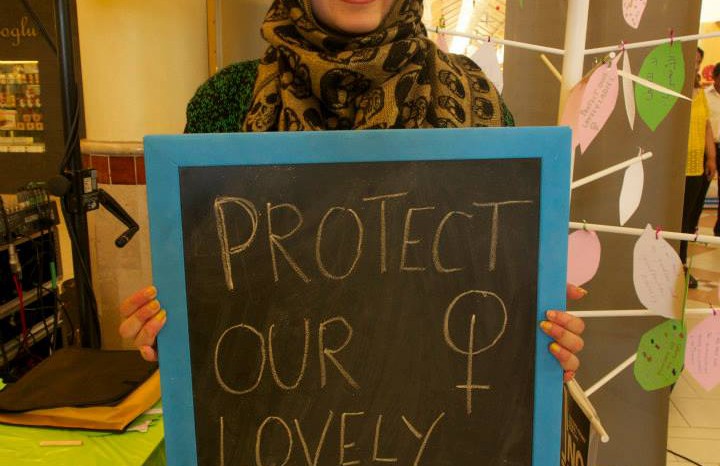 oglu
PROTECT
OUR ♀
LOVELY